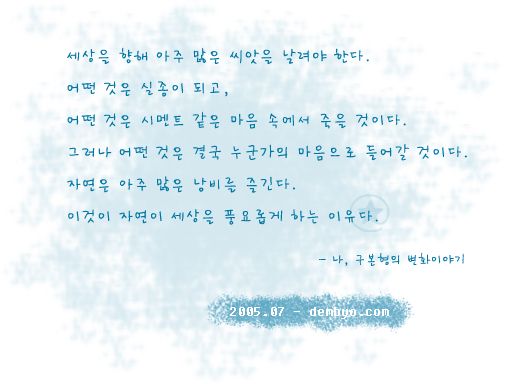 세상을 향해 아주 많은 씨앗을 날려야 한다.
어떤 것은 실종이 되고,
어떤 것은 시멘트 같은 마음 속에서 죽을 것이다.
그러나 어떤 것은 결국 누군가의 마음으로 들어갈 것이다.
자연은 아주 많은 낭비를 즐긴다.
이것이 자연이 세상을 풍요롭게 하는 이유다.
- 나, 구본형의 변화이야기
2005.07 - dembyo.com